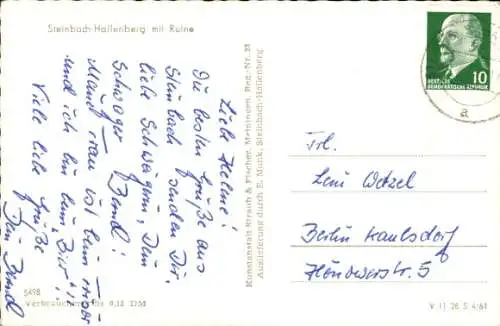 Steinbach-Hallenberg mit Ruine
Liebe Helene!
Die besten Grüße aus
Steinbach senden Dir,
liebe Schwägerin, Dein
Schwager Bernd!
Mang Frau ist beim
und ich bin beim „Bier“!
Viele liebe Grüße
Dein Bernd
5498
Verbraucherpreis 0,12 DM
Kunstanstalt Straub & Fischer, Meiningen, Reg.-Nr. 23
Auslieferung durch E. Munk, Steinbach-Hallenberg
DEUTSCHE
DEMOKRATISCHE REPUBLIK
10
a
Frl.
Leni Wetzel
Berlin Kaulsdorf
Hönowerstr. 5
V 11 28 S 4/61